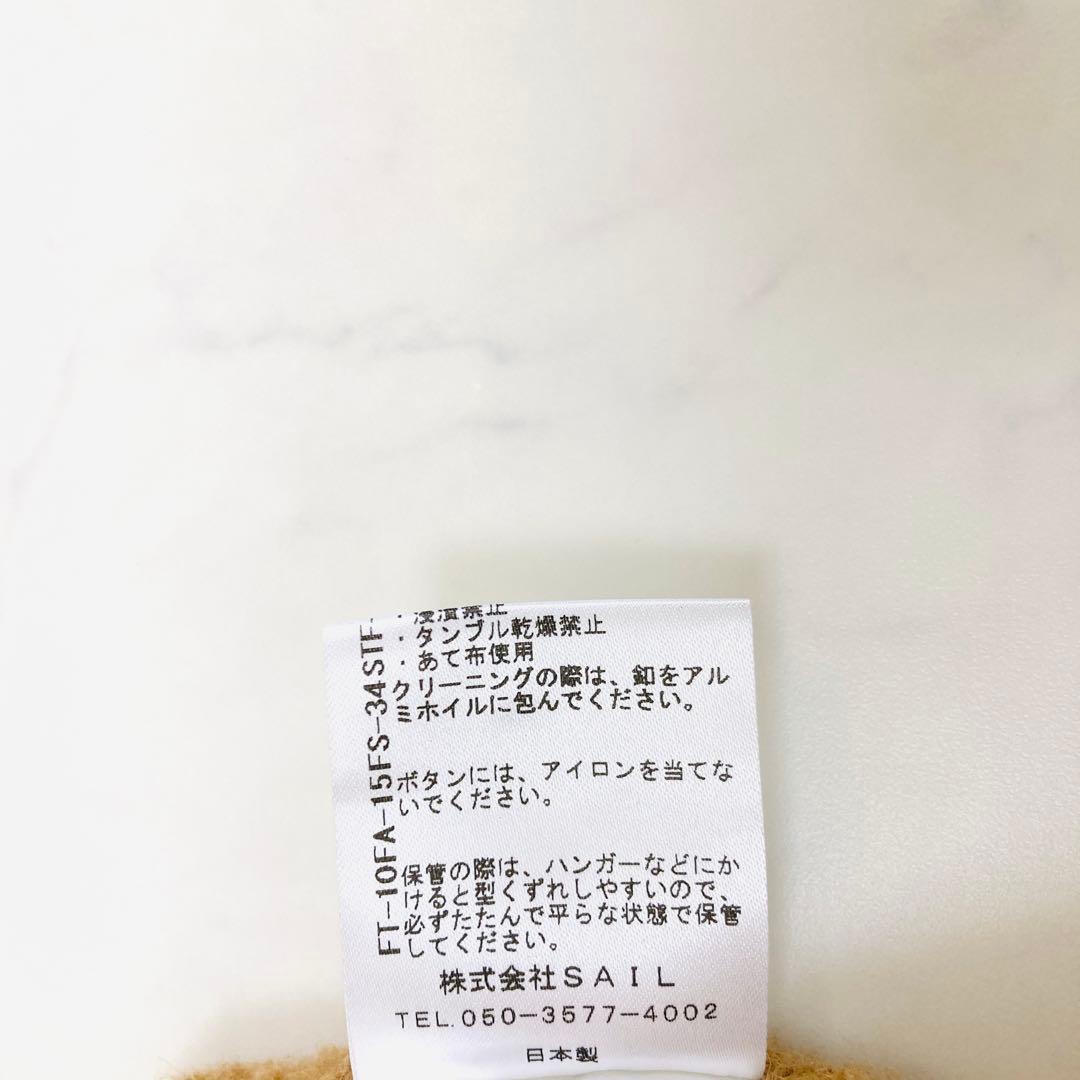 ・浸漬禁止
・タンブル乾燥禁止
・あて布使用
クリーニングの際は、釦をアル
ミホイルに包んでください。
ボタンには、アイロンを当てな
いでください。
保管の際は、ハンガーなどにか
けると型くずれしやすいので、
必ずたたんで平らな状態で保管
してください。
株式会社SAIL
TEL.050-3577-4002
日本製
FT-10FA-15FS-34STF-